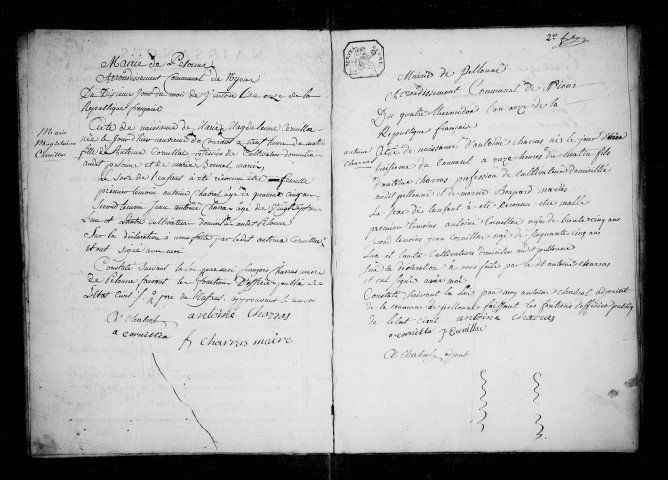 Mairie de Pelonne
Arrondissement Communal de Nyons
Du Dixieme jour du mois de l'an onze de la
Republique française
Marie
Magdeleine
Cornillac
Acte de naissance de Marie Magdeleine Cornillac
née le jour d'hier du Courant a neuf heures du matin
fille de Antoine Cornillac profession de Cultivateur domicilié
audit pelonne et de marie mariés
Le Sexe de l'enfant a été reconnu être femelle
premier temoin antoine Chabrol age de quarante cinq ans
Second temoin Jean antoine Charras age de Vingt Sept ans
L'un et l'autre Cultivateur domicilié audit Pelonne
Sur la déclaration à nous faite par ledit antoine Cornillac
et ont signé avec nous
Constaté Suivant la loi par moi françois Charras maire
de Pelonne faisant les fonctions D'officier public de
L'état Civil
A Chabrol antoine Charras
a cornillac
f charras maire
2e
Mairie de Pellonne
Arrondissement Communal de Nions
Du quatre thermidor l'an onze de la
Republique française
antoine
Charras
Acte de naissance d'antoine charras né le jour d'hier
du Courant a onze heures du Matin fils
d'antoine Charras profession de cultivateur domicillié
audit pellonne et de marie mariés
Le Sexe de lanfant a été Reconnu etre malle
premier temoins antoine Cornillac agé de trente cinq ans
segond temoins jean Cornillac agé de ans
Lun et lautre Cultivateurs domiciliés audit pellonne
Sur la declaration a nous faite par le dit antoine charras
et ont signé avec moi
Constaté Suivant la Loi par moy antoine chabrol adjoint
de la commune de pellonne faisant les fontions d'officier publiq
de letat civil antoine charras
a cornillac J Cornillac
A Chabrol adjoint